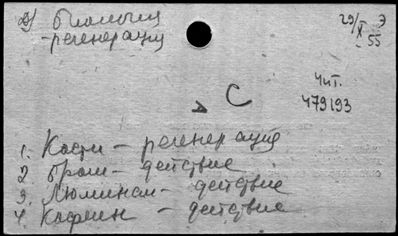 в) биология
- регенерация
29/X - 55
Э
С
Чит.
479193
1. Кости - регенерация
2 Бром - действие
3. Люминал - действие
4. Кофеин - действие